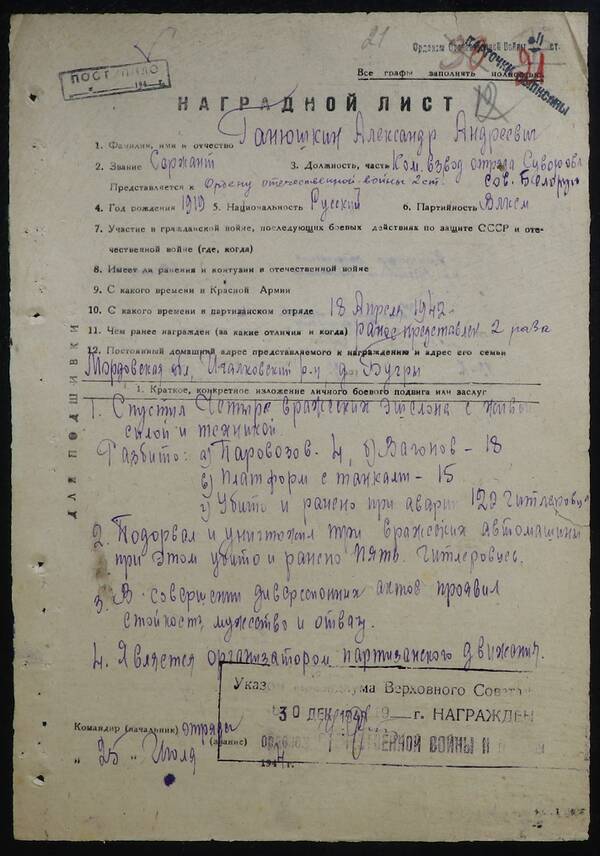 21
Орденом Отечественной Войны II ст.
30 21
Все графы заполнять полностью.
ПОСТУПИЛО
НАГРАДНОЙ ЛИСТ
12
1. Фамилия, имя и отчество Ганюшкин Александр Андреевич
2. Звание Сержант 3. Должность, часть Ком. взвод отряда Суворова
Представляется к Ордену отечественной войны 2 ст.
4. Год рождения 1919 5. Национальность Русский 6. Партийность Влксм
7. Участие в гражданской войне, последующих боевых действиях по защите СССР и оте-
чественной войне (где, когда)
8. Имеет ли ранения и контузии в отечественной войне
9. С какого времени в Красной Армии
10. С какого времени в партизанском отряде 18 Апреля 1942
11. Чем ранее награжден (за какие отличия и когда) ранее представлен 2 раза
12. Постоянный домашний адрес представляемого к награждению и адрес его семьи
Мордовская Ичалковский р-н д. Бугры
1. Краткое, конкретное изложение личного боевого подвига или заслуг
ДЛЯ ПОДШИВКИ
1. Спустил Четыре вражеских эшелона с живой
силой и техникой.
Разбито: а) Паровозов - 4, б) Вагонов - 18
в) Платформ с танками - 15
г) Убито и ранено при аварии 122 гитлеровца
2. Подорвал и уничтожил три вражеских автомашины
при этом убито и ранено пять гитлеровцев.
3. В совершении диверсионных актов проявил
стойкость, мужество и отвагу.
4. Является организатором партизанского движения.
Указом Верховного Совета
30 ДЕК 19 г. НАГРАЖДЕН
ВОЙНЫ II
Командир (начальник) отряда
(звание)
„ 25 " Июля 1944 г.